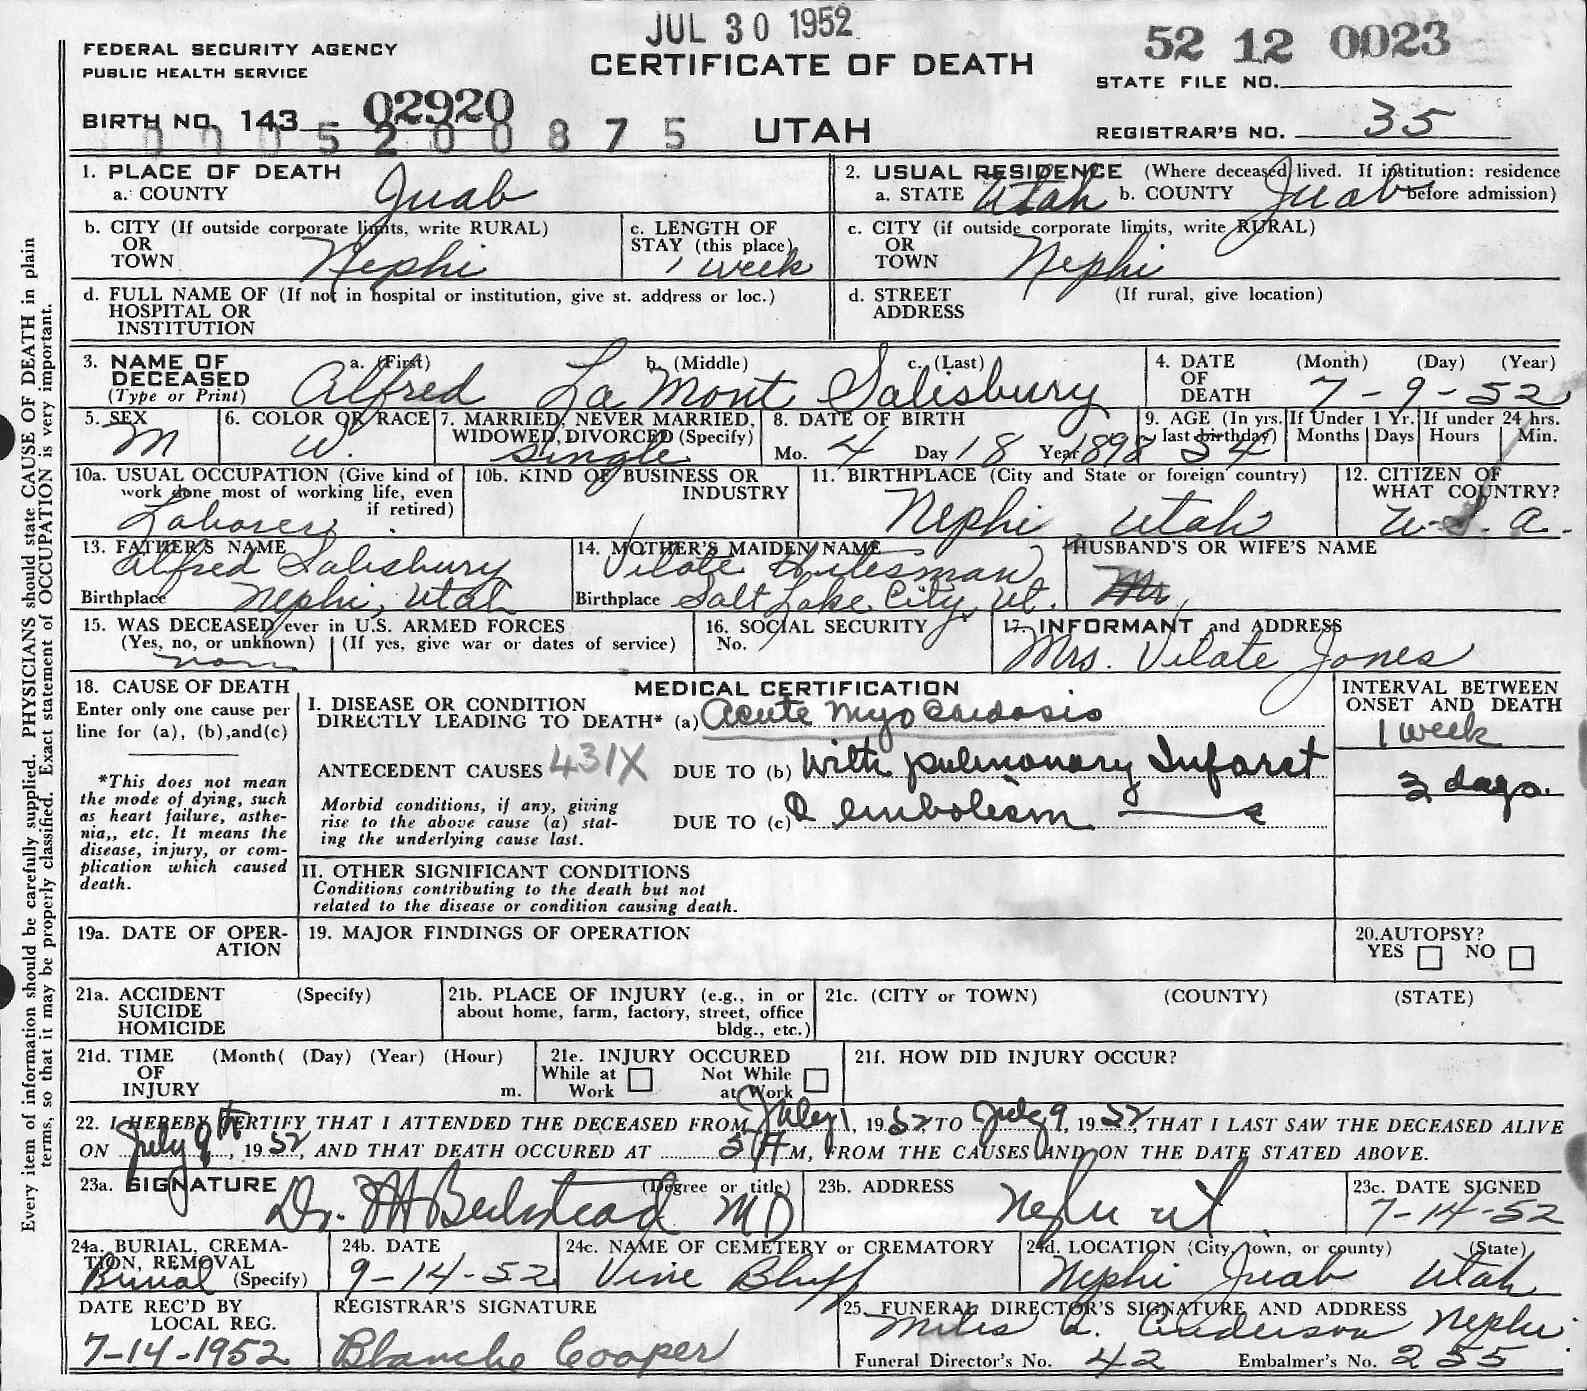 JUL 30 1952
FEDERAL SECURITY AGENCY
PUBLIC HEALTH SERVICE
CERTIFICATE OF DEATH
52 12 0023
STATE FILE NO.
BIRTH NO. 143 02920
0005200875
UTAH
REGISTRAR'S NO. 35
1. PLACE OF DEATH
a. COUNTY Juab
2. USUAL RESIDENCE (Where deceased lived. If institution: residence before admission)
a. STATE Utah b. COUNTY Juab
b. CITY (If outside corporate limits, write RURAL)
OR
TOWN Nephi
c. LENGTH OF
STAY (this place)
1 week
c. CITY (if outside corporate limits, write RURAL)
OR
TOWN Nephi
d. FULL NAME OF (If not in hospital or institution, give st. address or loc.)
HOSPITAL OR
INSTITUTION
d. STREET (If rural, give location)
ADDRESS
3. NAME OF DECEASED (Type or Print)
a. (First) b. (Middle) c. (Last)
Alfred La Mont Salisbury
4. DATE OF DEATH (Month) (Day) (Year)
7-9-52
5. SEX
M
6. COLOR OR RACE
W.
7. MARRIED, NEVER MARRIED,
WIDOWED, DIVORCED (Specify)
Single
8. DATE OF BIRTH
Mo. 4 Day 18 Year 1898
9. AGE (In yrs. last birthday) 54
If Under 1 Yr. Months Days
If under 24 hrs. Hours Min.
10a. USUAL OCCUPATION (Give kind of
work done most of working life, even
if retired)
Laborer
10b. KIND OF BUSINESS OR
INDUSTRY
11. BIRTHPLACE (City and State or foreign country)
Nephi Utah
12. CITIZEN OF
WHAT COUNTRY?
U.S.A.
13. FATHER'S NAME
Alfred Salisbury
Birthplace Nephi, Utah
14. MOTHER'S MAIDEN NAME
Vilate
Birthplace Salt Lake City, Ut.
HUSBAND'S OR WIFE'S NAME
15. WAS DECEASED ever in U.S. ARMED FORCES
(Yes, no, or unknown) (If yes, give war or dates of service)
16. SOCIAL SECURITY
No.
17. INFORMANT and ADDRESS
Mrs. Vilate Jones
18. CAUSE OF DEATH
Enter only one cause per
line for (a), (b), and (c)
*This does not mean
the mode of dying, such
as heart failure, asthe-
nia,, etc. It means the
disease, injury, or com-
plication which caused
death.
MEDICAL CERTIFICATION
I. DISEASE OR CONDITION
DIRECTLY LEADING TO DEATH* (a) Acute Myocardosis
ANTECEDENT CAUSES 431X DUE TO (b) With pulmonary Infarct
Morbid conditions, if any, giving
rise to the above cause (a) stat-
ing the underlying cause last.
DUE TO (c) & embolism
INTERVAL BETWEEN
ONSET AND DEATH
1 week
3 days.
II. OTHER SIGNIFICANT CONDITIONS
Conditions contributing to the death but not
related to the disease or condition causing death.
19a. DATE OF OPER-
ATION
19. MAJOR FINDINGS OF OPERATION
20. AUTOPSY?
YES NO
21a. ACCIDENT (Specify)
SUICIDE
HOMICIDE
21b. PLACE OF INJURY (e.g., in or
about home, farm, factory, street, office
bldg., etc.)
21c. (CITY or TOWN) (COUNTY) (STATE)
21d. TIME (Month( (Day) (Year) (Hour)
OF
INJURY m.
21e. INJURY OCCURED
While at Work Not While at Work
21f. HOW DID INJURY OCCUR?
22. I HEREBY CERTIFY THAT I ATTENDED THE DECEASED FROM July 1, 1952, TO July 9, 1952, THAT I LAST SAW THE DECEASED ALIVE
ON July 9th, 1952, AND THAT DEATH OCCURED AT 5 A M, FROM THE CAUSES AND ON THE DATE STATED ABOVE.
23a. SIGNATURE (Degree or title)
Dr. Beckstead MD
23b. ADDRESS
Nephi Ut
23c. DATE SIGNED
7-14-52
24a. BURIAL, CREMA-
TION, REMOVAL
Burial (Specify)
24b. DATE
9-14-52
24c. NAME OF CEMETERY or CREMATORY
Vine Bluff
24d. LOCATION (City, town, or county) (State)
Nephi Juab Utah
DATE REC'D BY
LOCAL REG.
7-14-1952
REGISTRAR'S SIGNATURE
Blanche Cooper
25. FUNERAL DIRECTOR'S SIGNATURE AND ADDRESS
Miles L. Anderson Nephi
Funeral Director's No. 42 Embalmer's No. 255
Every item of information should be carefully supplied. PHYSICIANS should state CAUSE OF DEATH in plain
terms, so that it may be properly classified. Exact statement of OCCUPATION is very important.